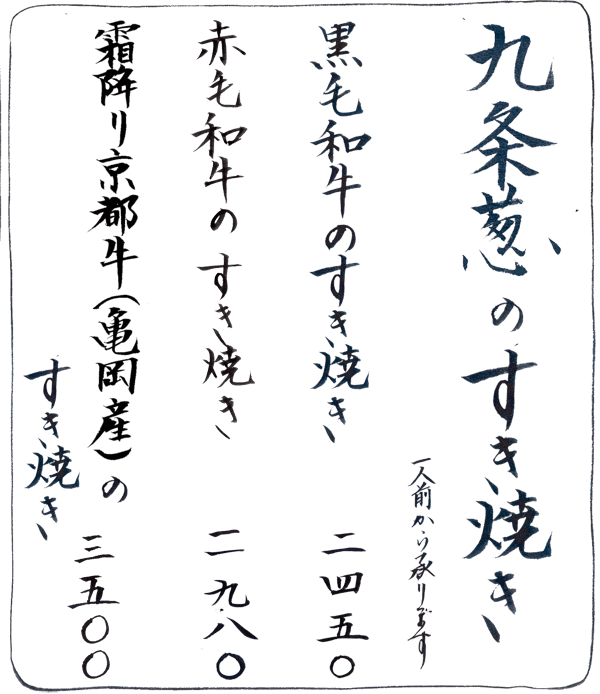 九条葱のすき焼き
一人前から承ります
黒毛和牛のすき焼き
二四五〇
赤毛和牛のすき焼き
二九八〇
霜降り京都牛(亀岡産)の
すき焼き
三五〇〇